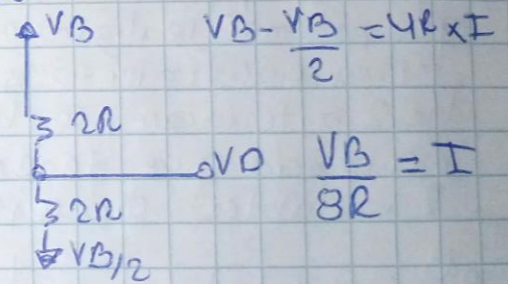 VB
VB - VB/2 = 4R × I
2R
VO
VB/8R = I
2R
VB/2